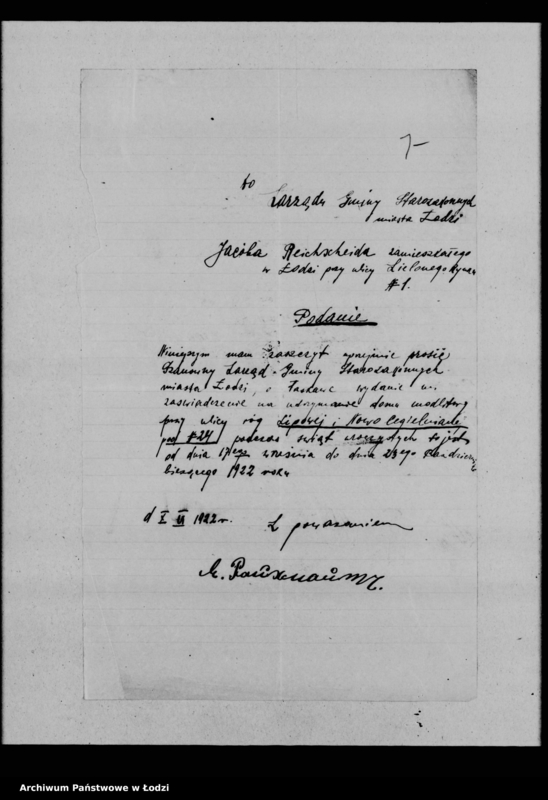 7-
do
Zarządu Gminy Starozakonnych
miasta Łodzi
Jacoba Reichscheida zamieszkałego
w Łodzi przy ulicy Zielonego Rynku
# 1.
Podanie
Niniejszym mam zaszczyt uprzejmie prosić
Szanowny Zarząd Gminy Starozakonnych
miasta Łodzi, o łaskawe wydanie mi
zaświadczenie na utrzymanie domu modlitwy
przy ulicy róg Lipowej i Nowo Cegielnianej
pod #24 podczas świąt to jest
od dnia 17ego września do dnia
bieżącego 1922 roku
d 1922 r. Z poważaniem